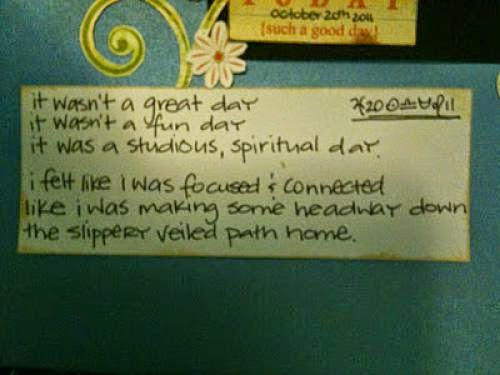 TODAY
october 20th 2011
{such a good day}
it wasn't a great day
it wasn't a fun day
it was a studious, spiritual day.
i felt like i was focused & connected
like i was making some headway down
the slippery veiled path home.